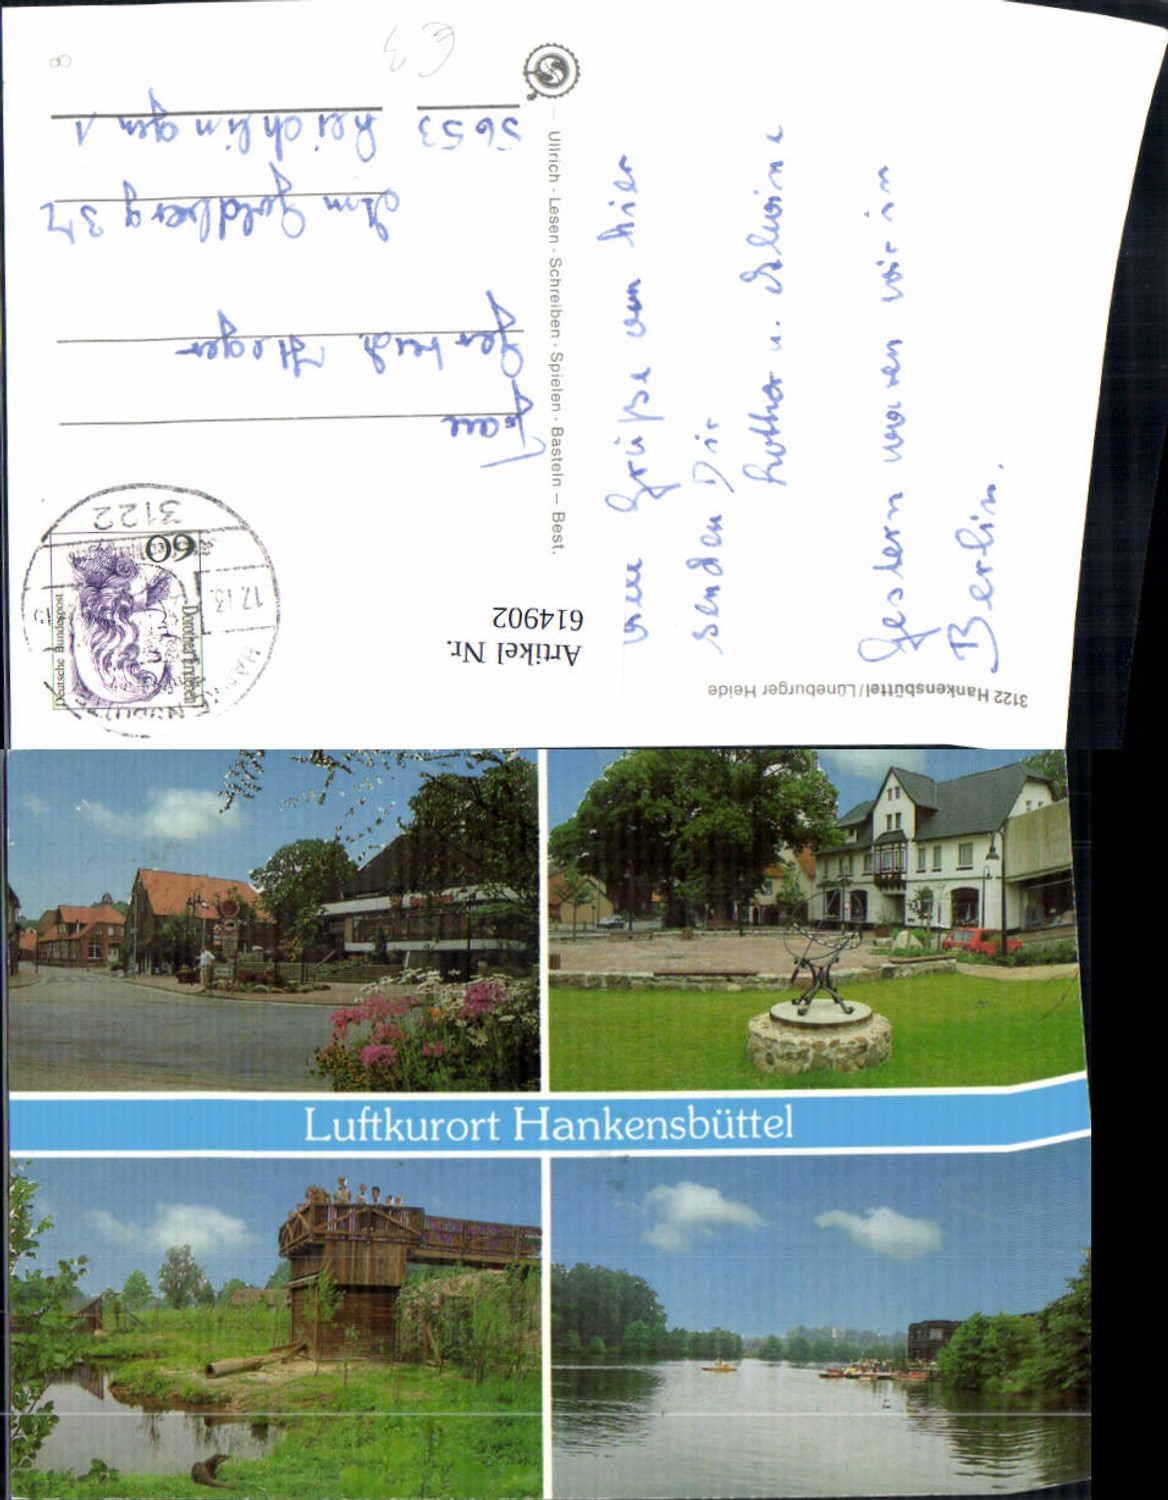 3122 Hankensbüttel/Lüneburger Heide
Artikel Nr.
614902
viele Grüße von hier
senden Dir
Lothar u. Elwine
Gestern waren wir in
Berlin.
Ullrich - Lesen - Schreiben - Spielen - Basteln — Best.
Deutsche Bundespost
Dorothea Erxleben
60
3122
Frau
Gertrud Heger
Am Goldberg 37
5653 Leichlingen 1
€3
Luftkurort Hankensbüttel